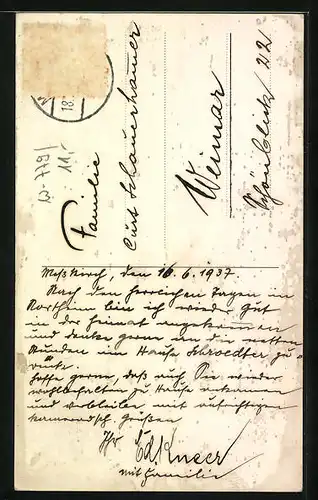 18.
W-779/
11,-
Familie
Curt Schauerhamer
Weimar
Schönblick 22
Meßkirch, den 16.6.1937
Nach den herrlichen Tagen in
Northeim bin ich wieder gut
in der Heimat angekommen
und denke gern an die netten
Stunden im Hause Schroedter zu-
rück.
Hoffe gern, daß auch Sie wieder
wohlbehalten zu Hause ankamen
und verbleibe mit aufrichtigen
kameradsch. Grüßen
Ihr Ed. Kneer
mit Familie